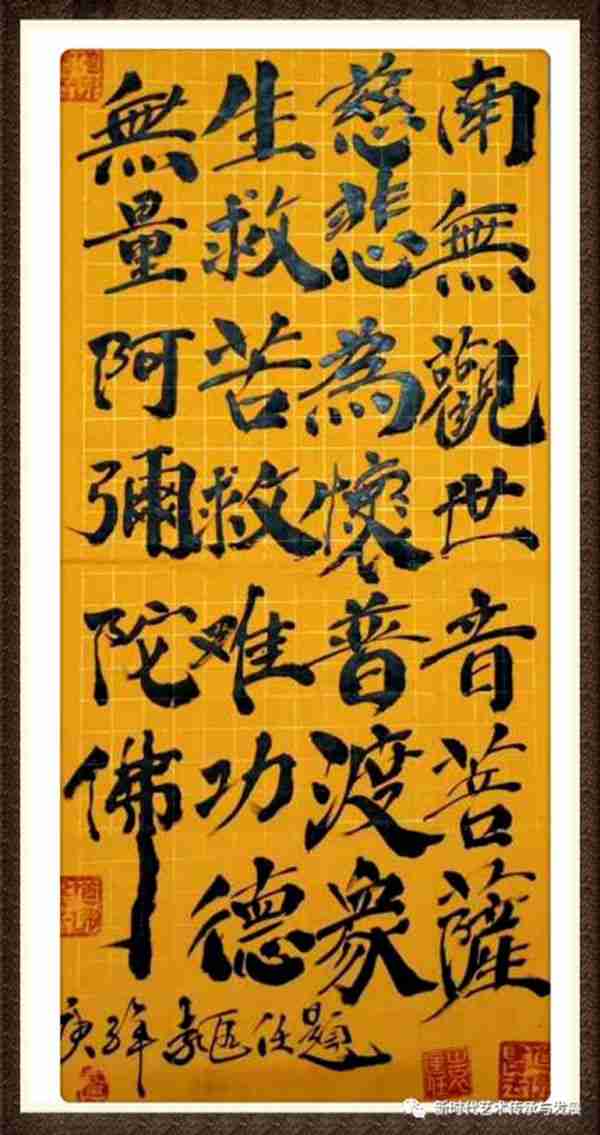 南無觀世音菩薩
慈悲為懷普渡衆
生救苦救难功德
無量阿彌陀佛
庚子年任題
新时代艺术传承与发展